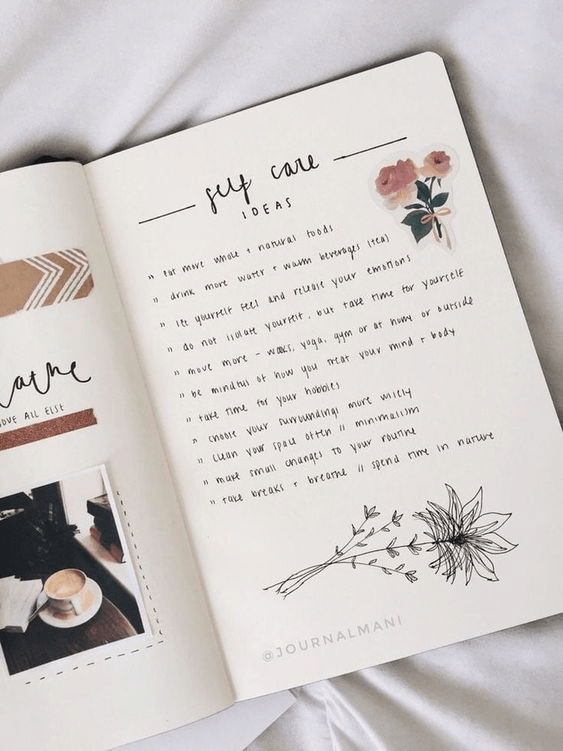 self care
IDEAS
" eat more whole + natural foods
" drink more water + warm beverages (tea)
" let yourself feel and release your emotions
" do not isolate yourself, but take time for yourself
" move more - walks, yoga, gym or at home or outside
" be mindful of how you treat your mind + body
" take time for your hobbies
" choose your surroundings more wisely
" clean your space often // minimalism
" make small changes to your routine
" take breaks + breathe // spend time in nature
@JOURNALMANI
ALL ELSE